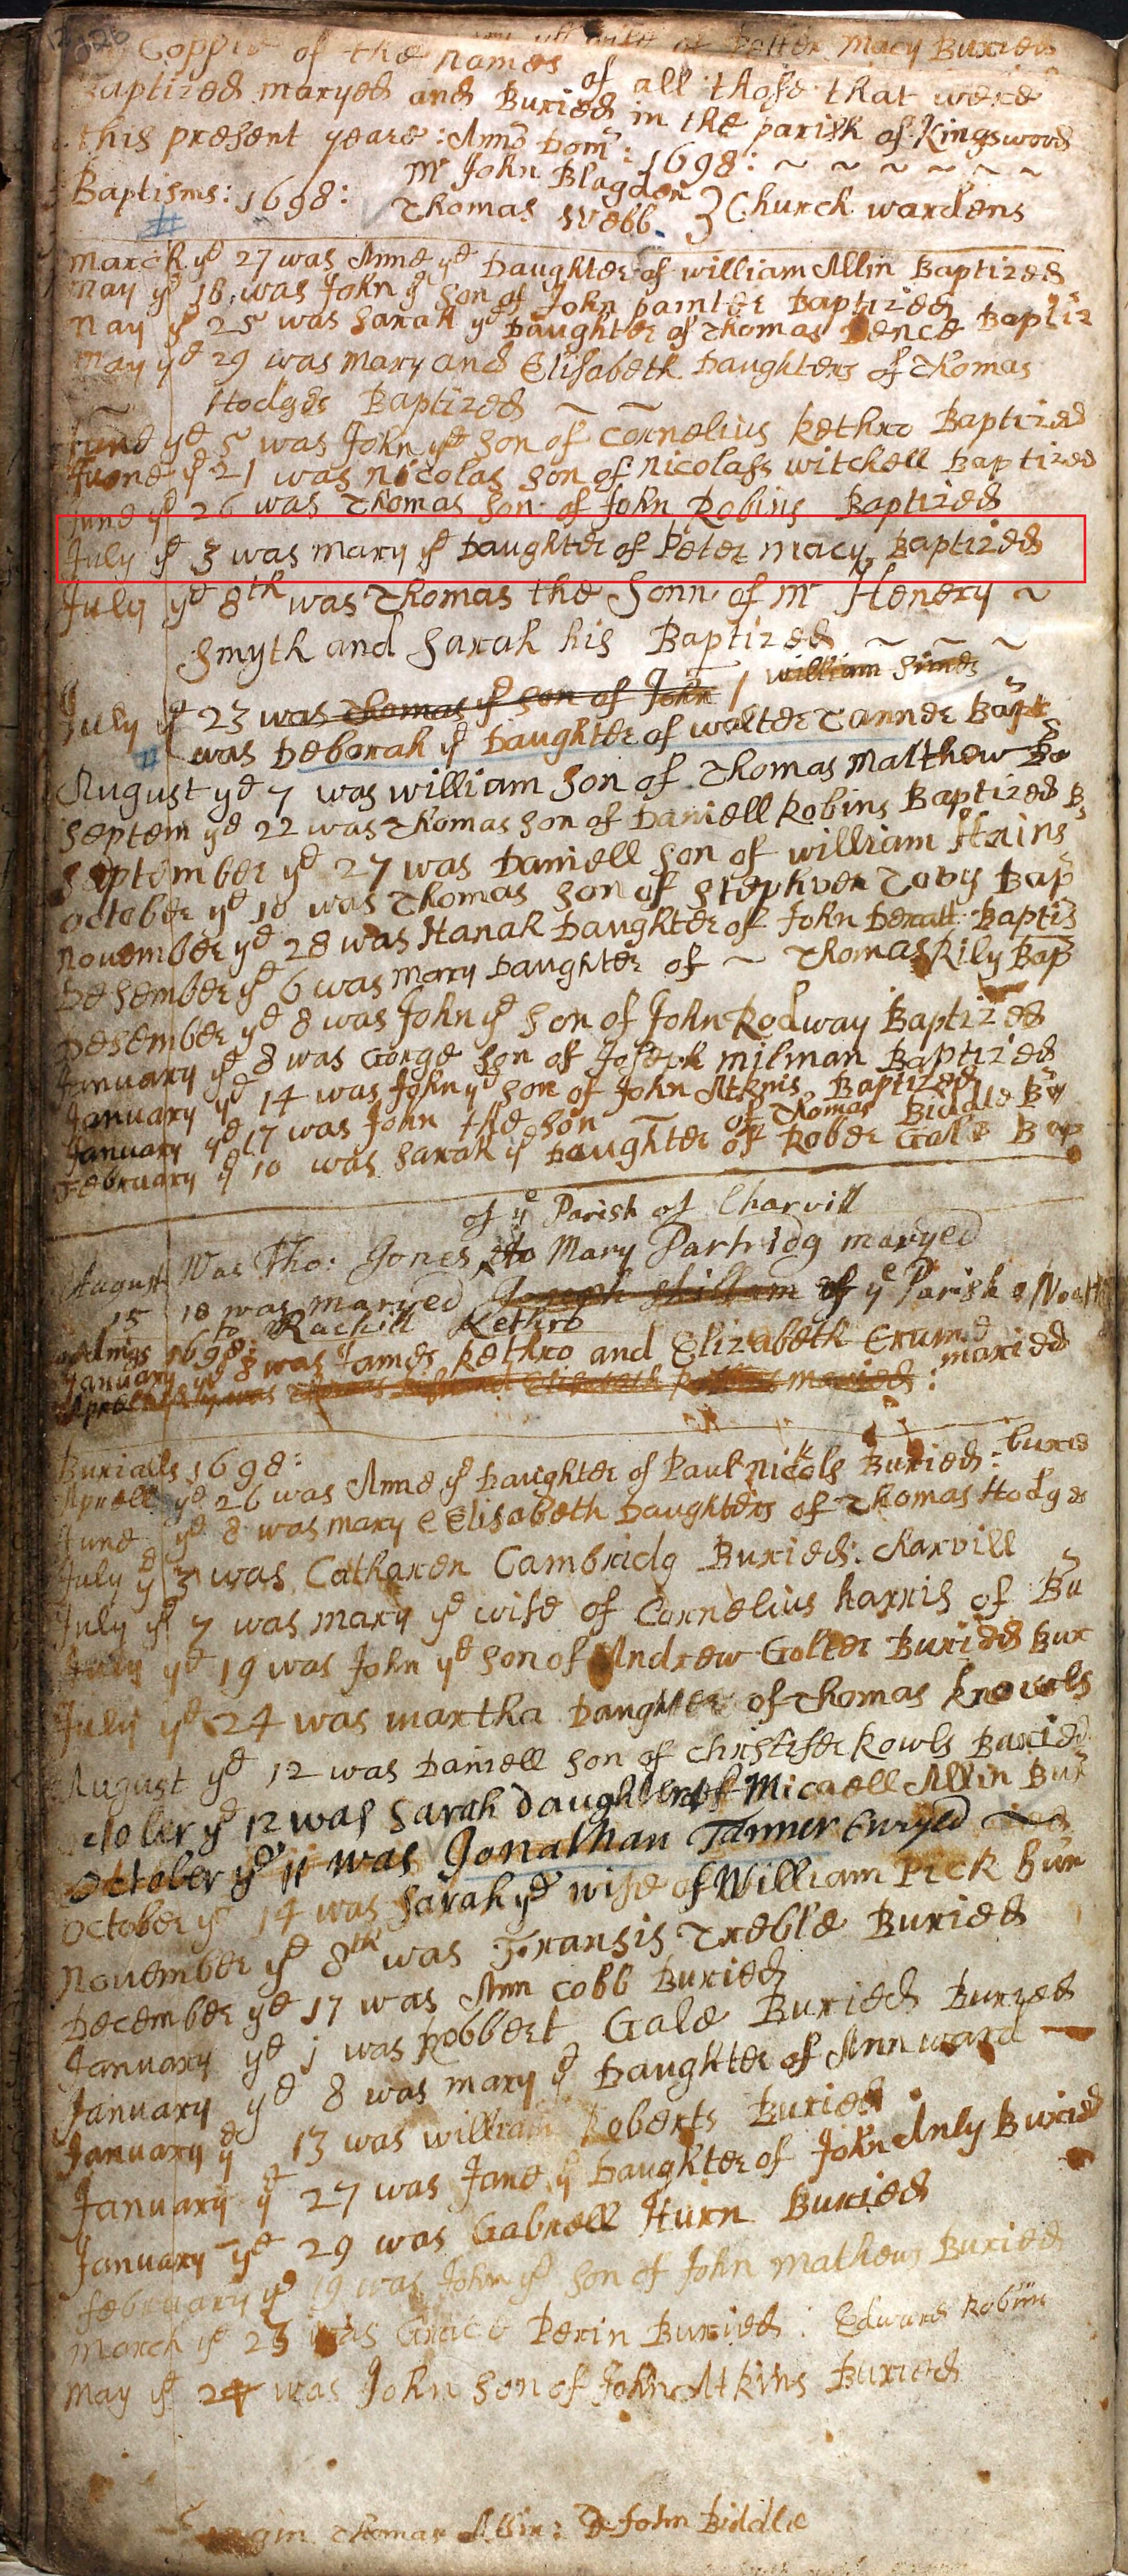 of Petter Macy Buried
Coppie of the Names of all those that were
Baptized maryed and Buried in the parish of Kingswood
this present yeare: Anno Dom: 1698: ~ ~ ~ ~ ~ ~
Baptisms: 1698: Mr John Blagdon
Thomas Webb } Church wardens
March ye 27 was Anne ye Daughter of william Allin Baptized
May ye 18 was John ye Son of John painter Baptized
May ye 25 was Sarah ye Daughter of Thomas Pence Baptiz
May ye 29 was Mary and Elisabeth Daughters of Thomas
Hodges Baptized ~ ~
June ye 5 was John ye Son of Cornelius Kethro Baptized
Juone ye 21 was nicolas Son of nicolass witchell Baptized
June ye 26 was Thomas Son of John Robins Baptized
July ye 3 was mary ye Daughter of Peter macy Baptized
July ye 8th was Thomas the Sonn of Mr Henery ~
Smyth and Sarah his Baptized ~ ~ ~
July ye 23 was Thomas ye son of John / william Simes
was Deborah ye Daughter of walter Tanner Bapt
August ye 7 was william Son of Thomas Matthew Ba
Septem ye 22 was Thomas Son of Daniell Robins Baptized
September ye 27 was Daniell Son of william Hains B
October ye 18 was Thomas Son of Stephven Toby Bap
November ye 28 was Hanah Daughter of John Baptis
Desember ye 6 was Mary Daughter of ~ Thomas Rily Bap
Desember ye 8 was John ye Son of John Rodway Baptized
January ye 8 was Gorge Son of Joseph milman Baptized
January ye 14 was John ye Son of John Atkins Baptized
January ye 17 was John the Son ~ of Thomas Biddle Ba
February ye 10 was Sarah ye Daughter of Rober Gale Bap
of ye Parish of Charvill
August Was Tho: Jones to Mary Partridg maryed
15 18 was maryed Joseph of ye Parish o
to Rachill Kethro
1698:
January ye 8 was James Kethro and Elizabeth Crume maried
Aprell was Thomas and Elisabeth maried:
Burialls 1698:
Aprell ye 26 was Anne ye Daughter of Paul Nickols Buried:
June ye 8 was mary & Elisabeth Daughters of Thomas Hodges buried
July ye 3 was Catharen Cambridg Buried: charvill
July ye 7 was mary ye wife of Cornelius harris of Bu
July ye 19 was John ye Son of Andrew Goller Buried
July ye 24 was martha Daughter of Thomas Knowls Bur
August ye 12 was Daniell Son of christifer Rowls Buried
ctober ye 12 was Sarah Daughter of Micaell Allin Bur
October ye 11 was Jonathan Tanner buryed ~
October ye 14 was Sarah ye wife of William Pick bur
November ye 8th was Fransis Treble Buried
December ye 17 was Ann Cobb Buried
January ye 1 was Robbert Gale Buried
January ye 8 was mary ye Daughter of Ann ward Buried
January ye 13 was william Roberts Buried
January ye 27 was Jane ye Daughter of John Anly Buried
January ye 29 was Gabrell Hurn Buried
february ye 19 was John ye Son of John mathews Buried
March ye 23 was Grace Perin Buried: Edward Robins
May ye 24 was John Son of John Atkins Buried
Thomas Allin: John Biddle